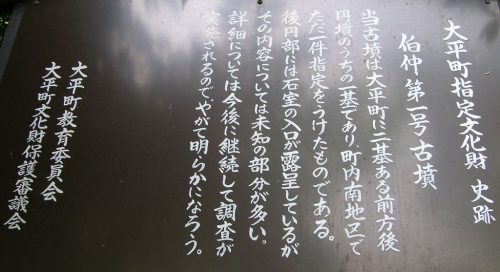 大平町指定文化財 史跡
伯仲第一号古墳
当古墳は大平町に二基ある前方後
円墳のうちの一基であり、町内南地区で
ただ一件指定をうけたものである。
後円部には石室の入口が露呈しているが
その内容については未知の部分が多い。
詳細については今後に継続して調査が
実施されるので、やがて明らかになろう。
大平町教育委員会
大平町文化財保護審議会